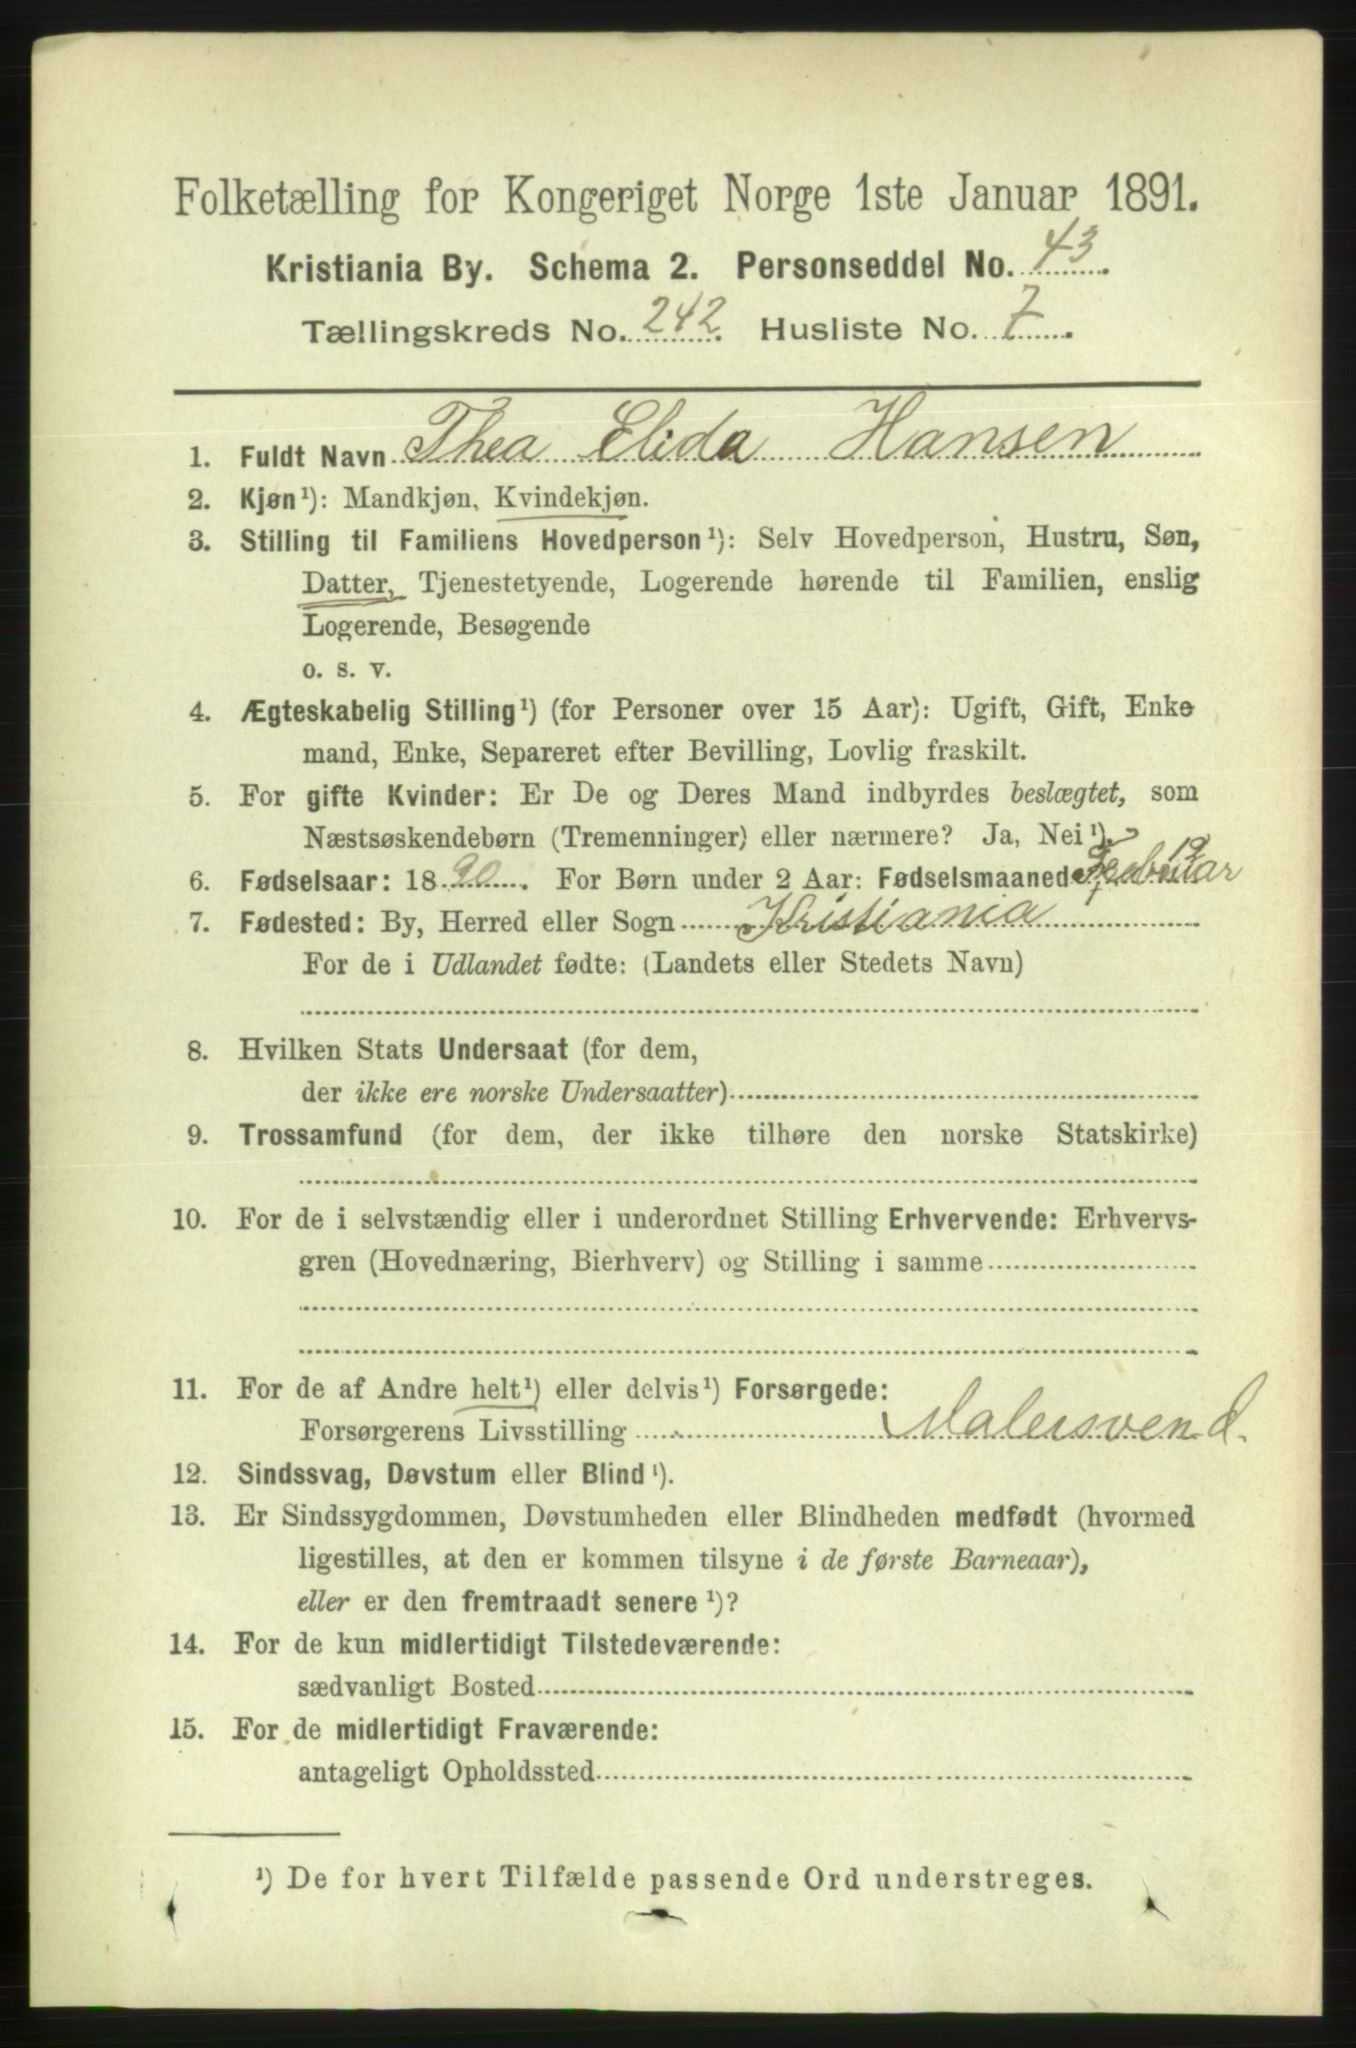 Folketælling for Kongeriget Norge 1ste Januar 1891.
Kristiania By. Schema 2. Personseddel No. 43.
Tællingskreds No. 242. Husliste No. 7.
1. Fuldt Navn Thea Elida Hansen
2. Kjøn¹): Mandkjøn, Kvindekjøn.
3. Stilling til Familiens Hovedperson¹): Selv Hovedperson, Hustru, Søn,
Datter, Tjenestetyende, Logerende hørende til Familien, enslig
Logerende, Besøgende
o. s. v.
4. Ægteskabelig Stilling¹) (for Personer over 15 Aar): Ugift, Gift, Enke
mand, Enke, Separeret efter Bevilling, Lovlig fraskilt.
5. For gifte Kvinder: Er De og Deres Mand indbyrdes beslægtet, som
Næstsøskendebørn (Tremenninger) eller nærmere? Ja, Nei¹).
19
6. Fødselsaar: 1890. For Børn under 2 Aar: Fødselsmaaned Februar
7. Fødested: By, Herred eller Sogn Kristiania
For de i Udlandet fødte: (Landets eller Stedets Navn)
8. Hvilken Stats Undersaat (for dem,
der ikke ere norske Undersaatter)
9. Trossamfund (for dem, der ikke tilhøre den norske Statskirke)
10. For de i selvstændig eller i underordnet Stilling Erhvervende: Erhvervs-
gren (Hovednæring, Bierhverv) og Stilling i samme
11. For de af Andre helt¹) eller delvis¹) Forsørgede:
Forsørgerens Livsstilling Malersvend.
12. Sindssvag, Døvstum eller Blind¹).
13. Er Sindssygdommen, Døvstumheden eller Blindheden medfødt (hvormed
ligestilles, at den er kommen tilsyne i de første Barneaar),
eller er den fremtraadt senere¹)?
14. For de kun midlertidigt Tilstedeværende:
sædvanligt Bosted
15. For de midlertidigt Fraværende:
antageligt Opholdssted
¹) De for hvert Tilfælde passende Ord understreges.